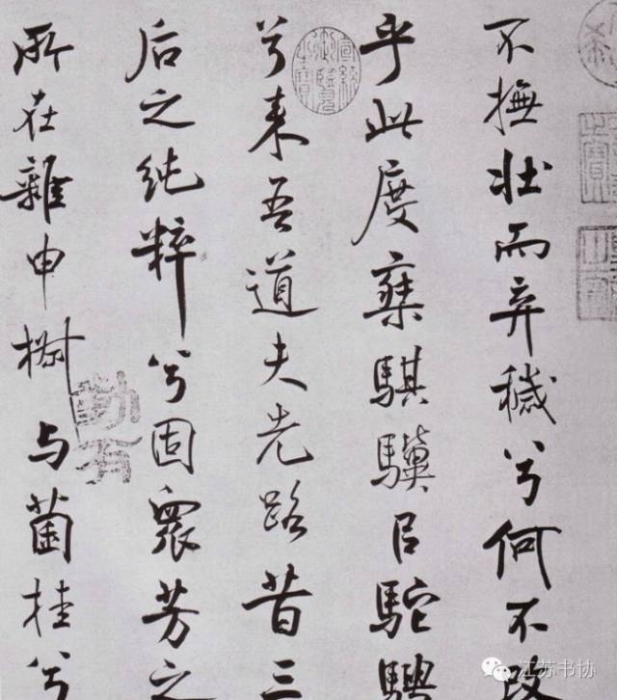 不撫壯而弃穢兮何不改
乎此度椉騏驥㠯駝騁
兮来吾道夫先路昔三
后之纯粹兮固衆芳之
所在雜申椒与菌桂兮
江苏书协